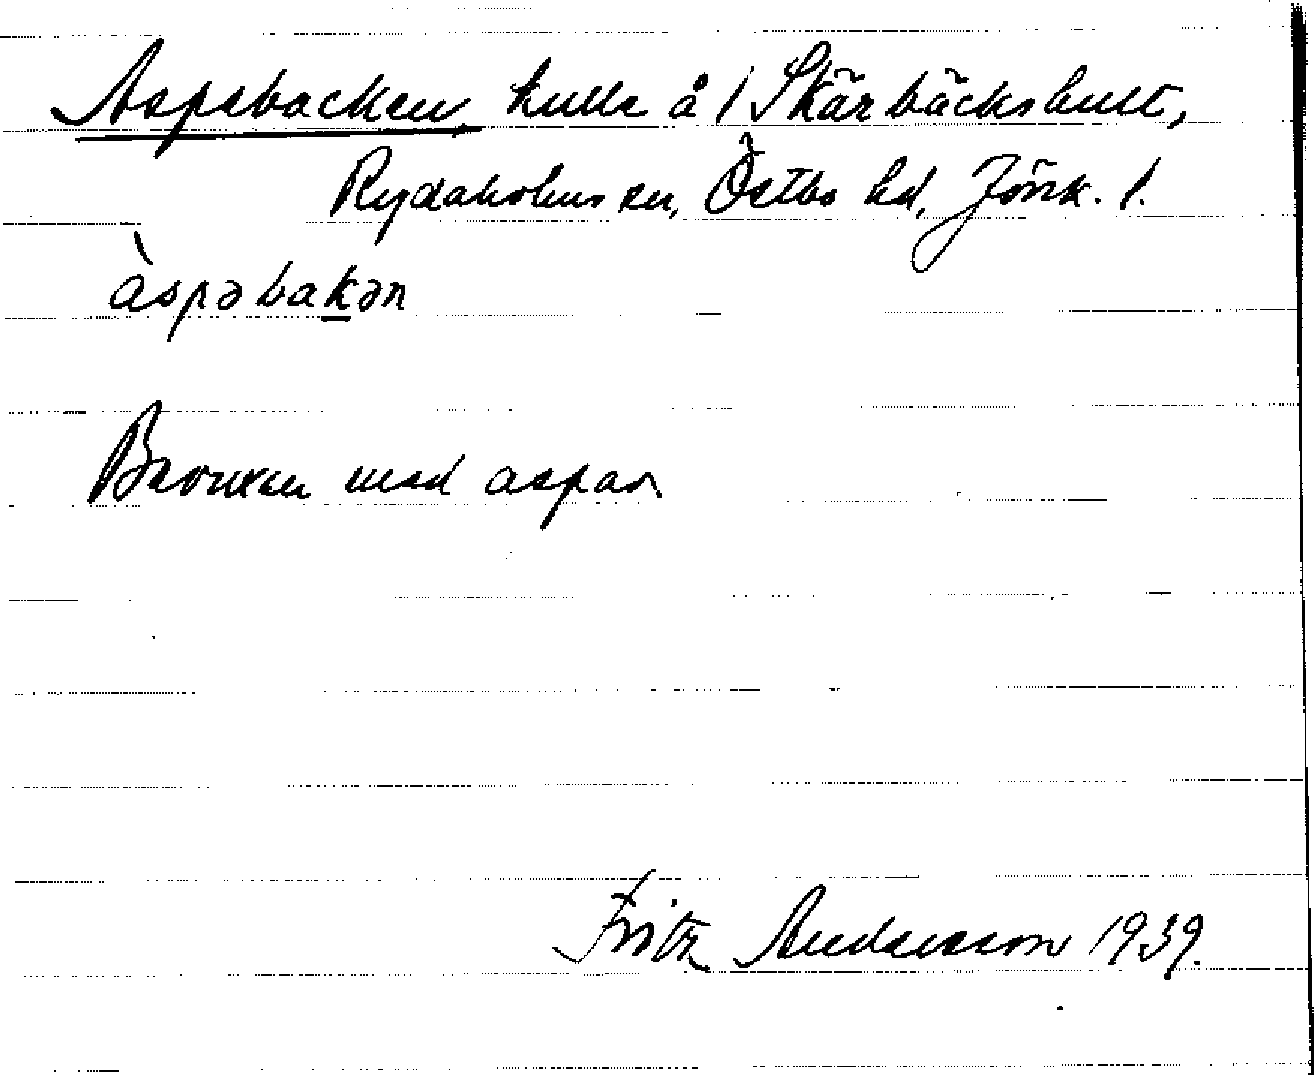 Aspebacken, kulle å 1 Skärbäckshult,
Rydaholms sn, Östbo hd, Jönk. l.
àspəbakən
Bevuxen med aspar
Fritz Andersson 1939.